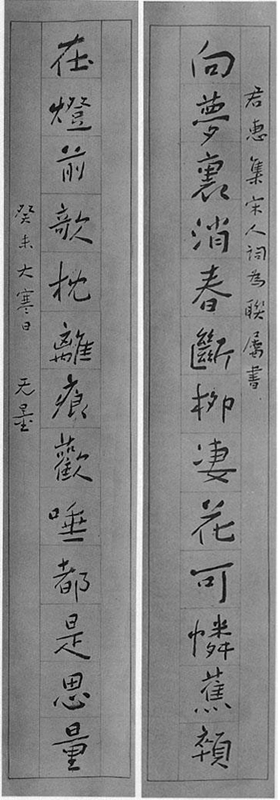 君惠集宋人詞為聯屬書
向夢裏消春斷柳淒花可憐蕉顇
在燈前欹枕離痕歡唾都是思量
癸未大寒日 无量